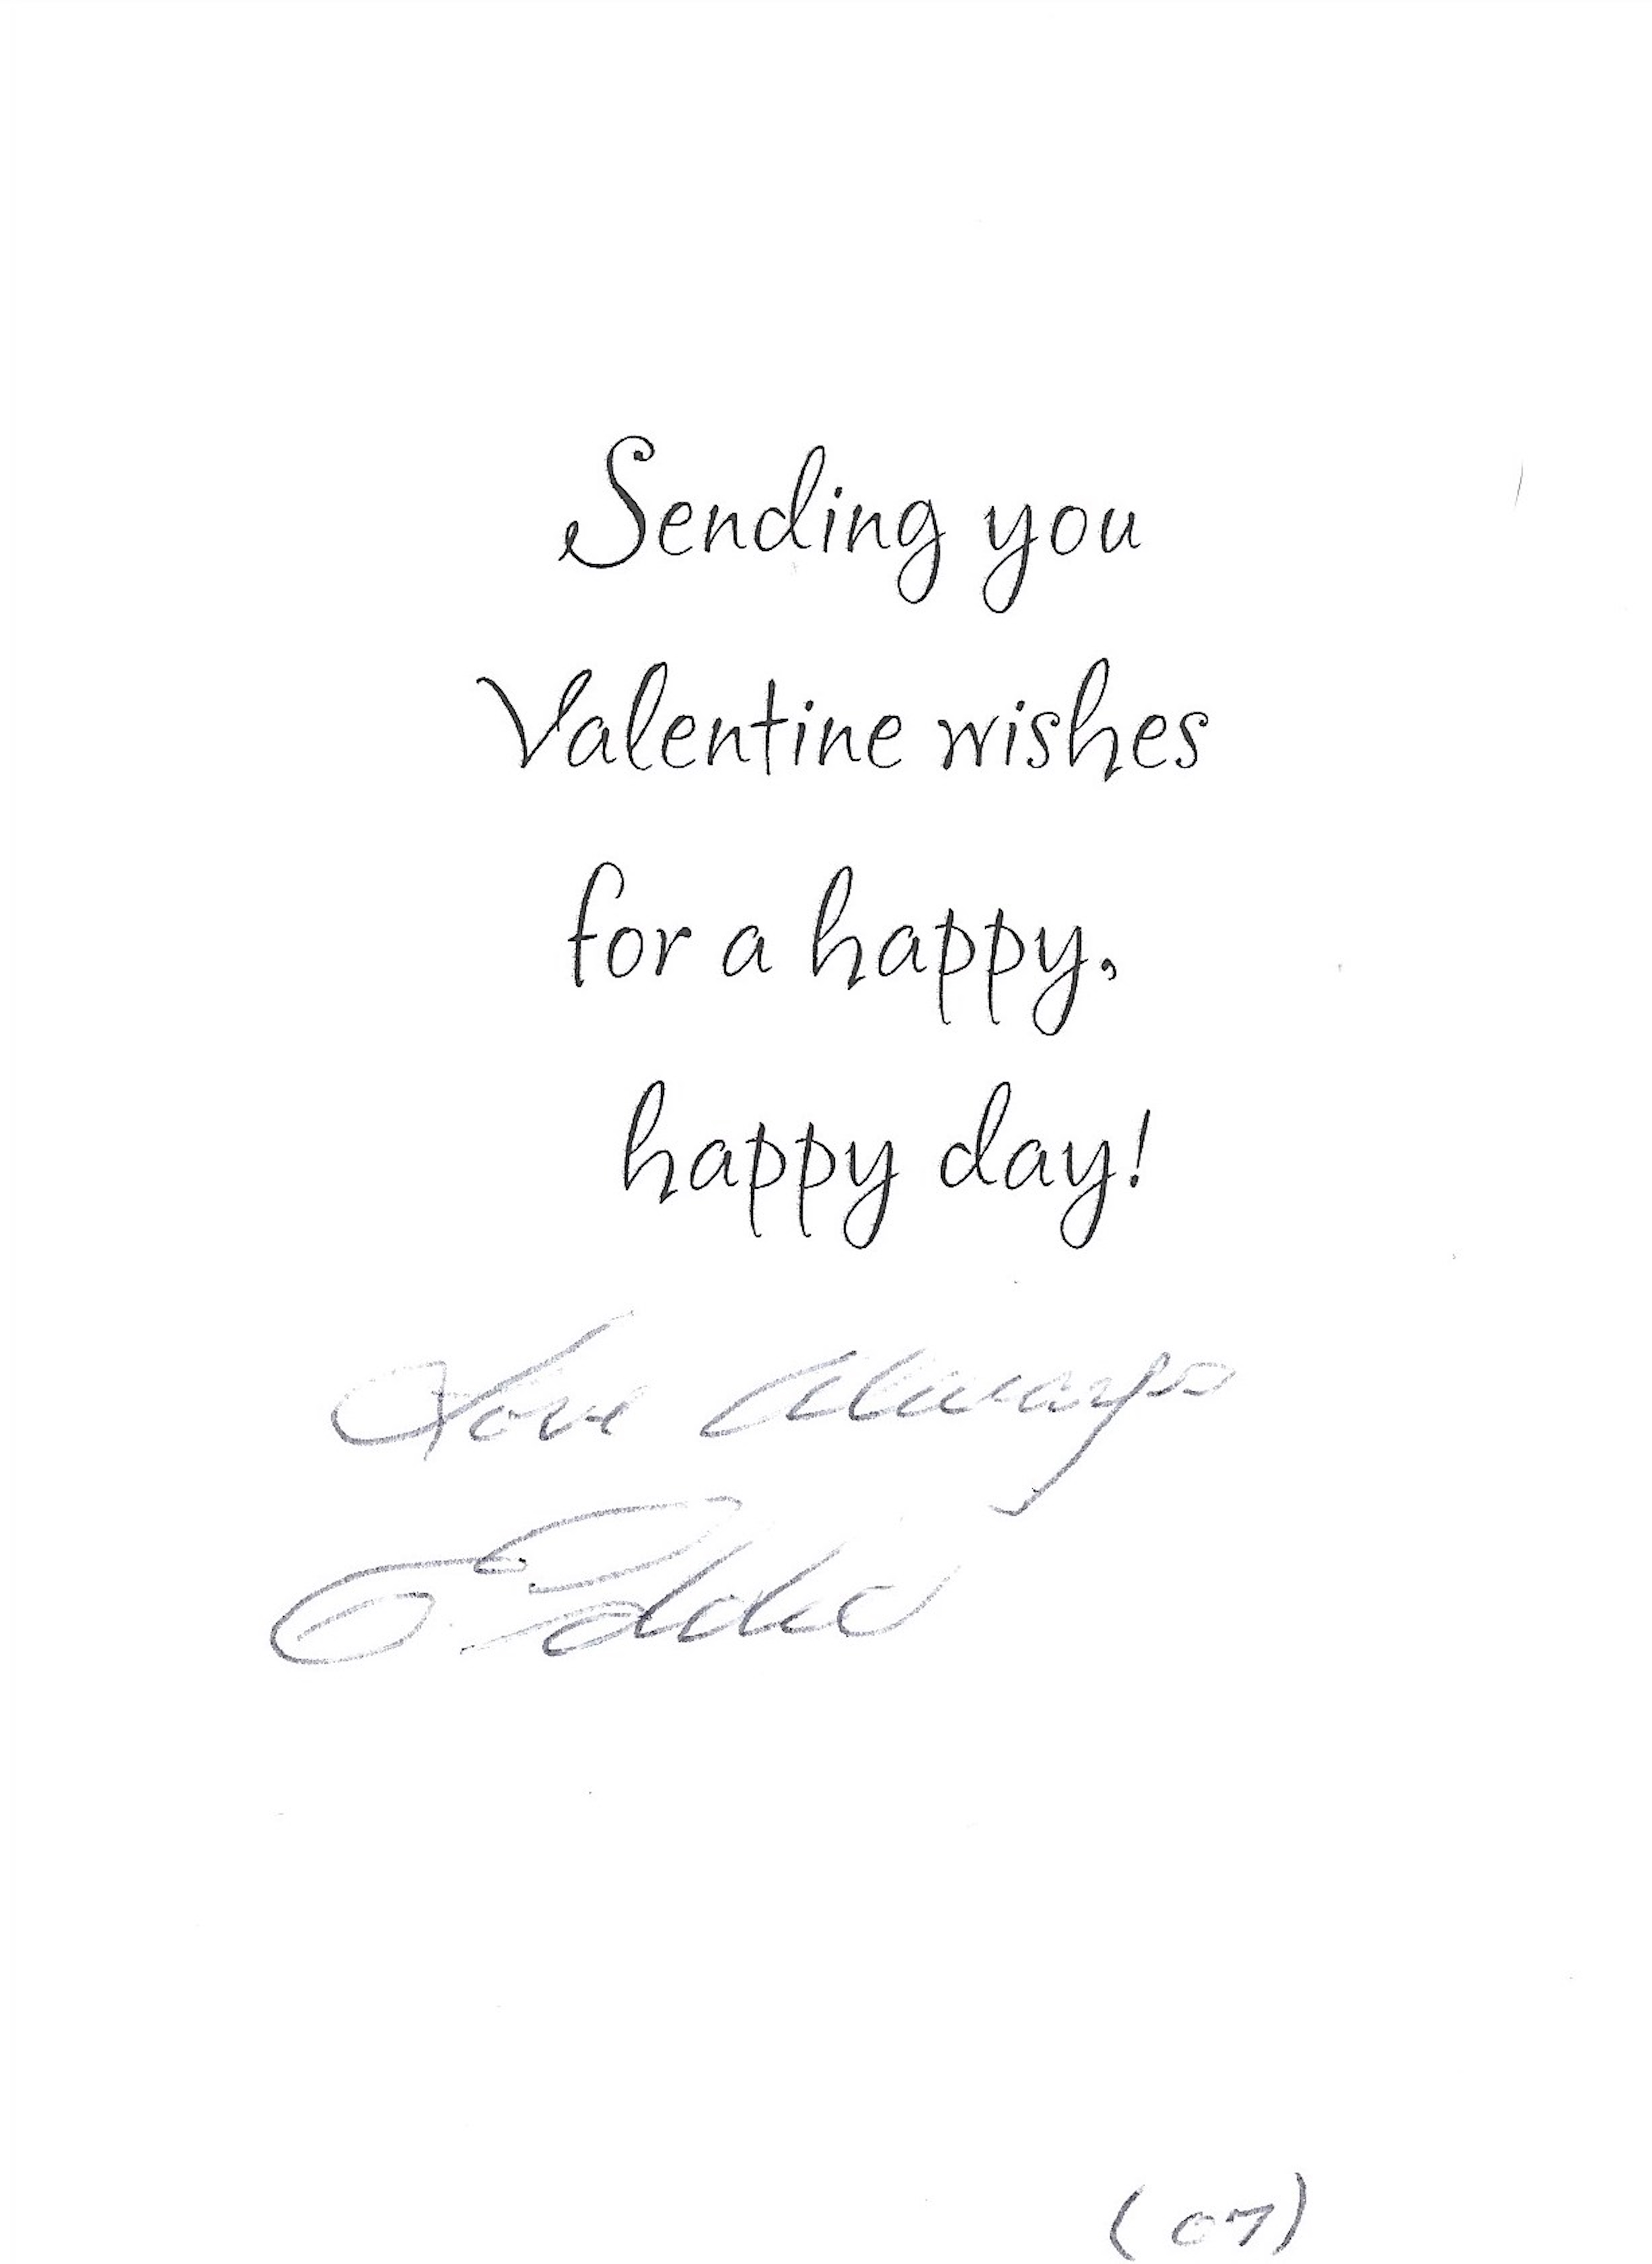 Sending you
Valentine wishes
for a happy,
happy day!
Love Always
(07)